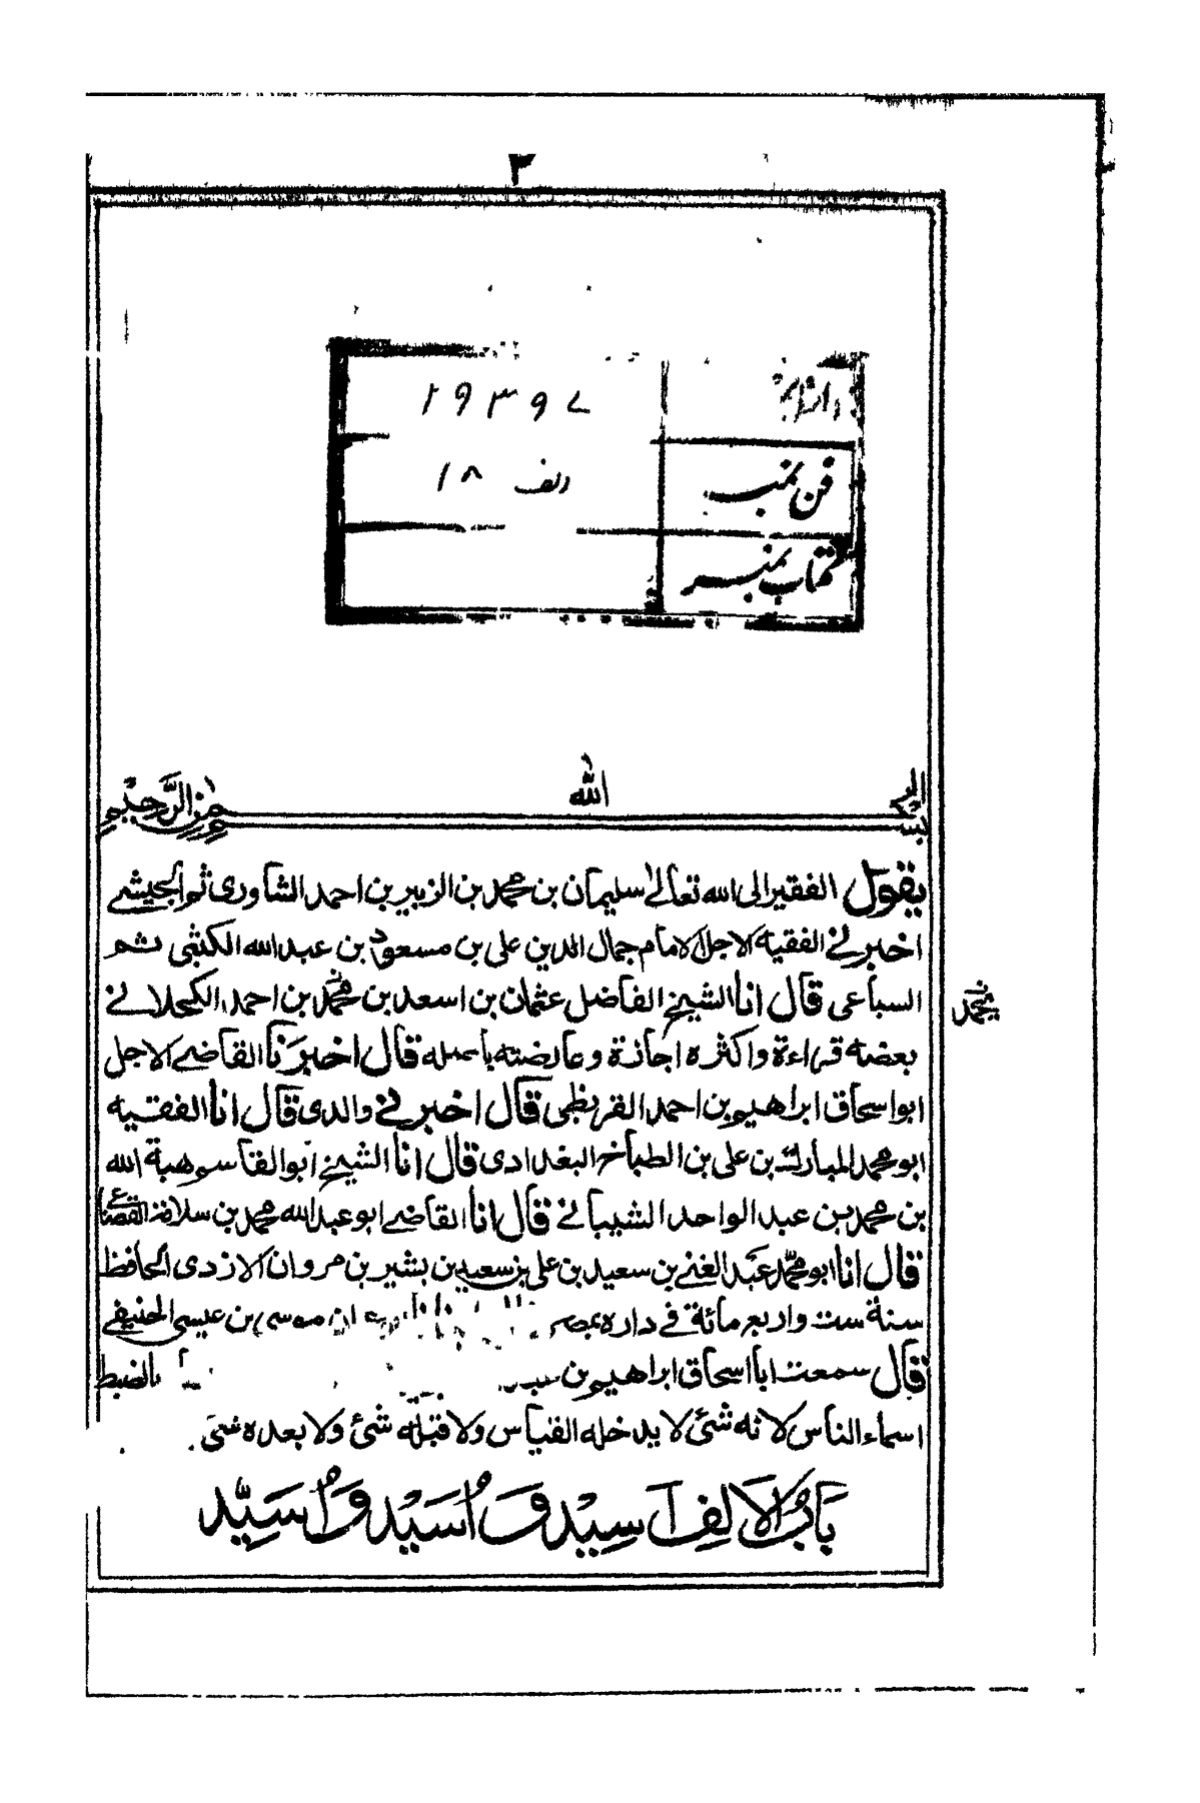 ٣
٢٩٣٩٧
فن نمبر الف ١٨
كتاب نمبر
بسم الله الرحمن الرحيم
يقول الفقير الى الله تعالى سليمان بن محمد بن الزبير بن احمد الشاورى ثم الجيشى
اخبرنى الفقيه الاجل الامام جمال الدين على بن مسعود بن عبد الله الكثبى ثم
السباعى قال انا الشيخ الفاضل عثمان بن اسعد بن محمد بن احمد الكحلانى
محمد
بعضه قراءة واكثره اجازة وعارضته باصله قال اخبرنا القاضى الاجل
ابو اسحاق ابراهيم بن احمد القريظى قال اخبرنى والدى قال انا الفقيه
ابو محمد المبارك بن على بن الطباخ البغدادى قال انا الشيخ ابو القاسم هبة الله
بن محمد بن عبد الواحد الشيبانى قال انا القاضى ابو عبد الله محمد بن سلامة القضاعى
قال انا ابو محمد عبد الغنى بن سعيد بن على بن سعيد بن بشير بن مروان الازدى الحافظ
سنة ست واربع مائة فى داره بمصر بن موسى بن عيسى الحنيفى
قال سمعت ابا اسحاق ابراهيم بن بالضبط
اسماء الناس لانه شئ لا يدخله القياس ولا قبله شئ ولا بعده شئ
بَابُ الالِفِ اَسِيْد وَ اُسَيْد وَ اُسَيِّد